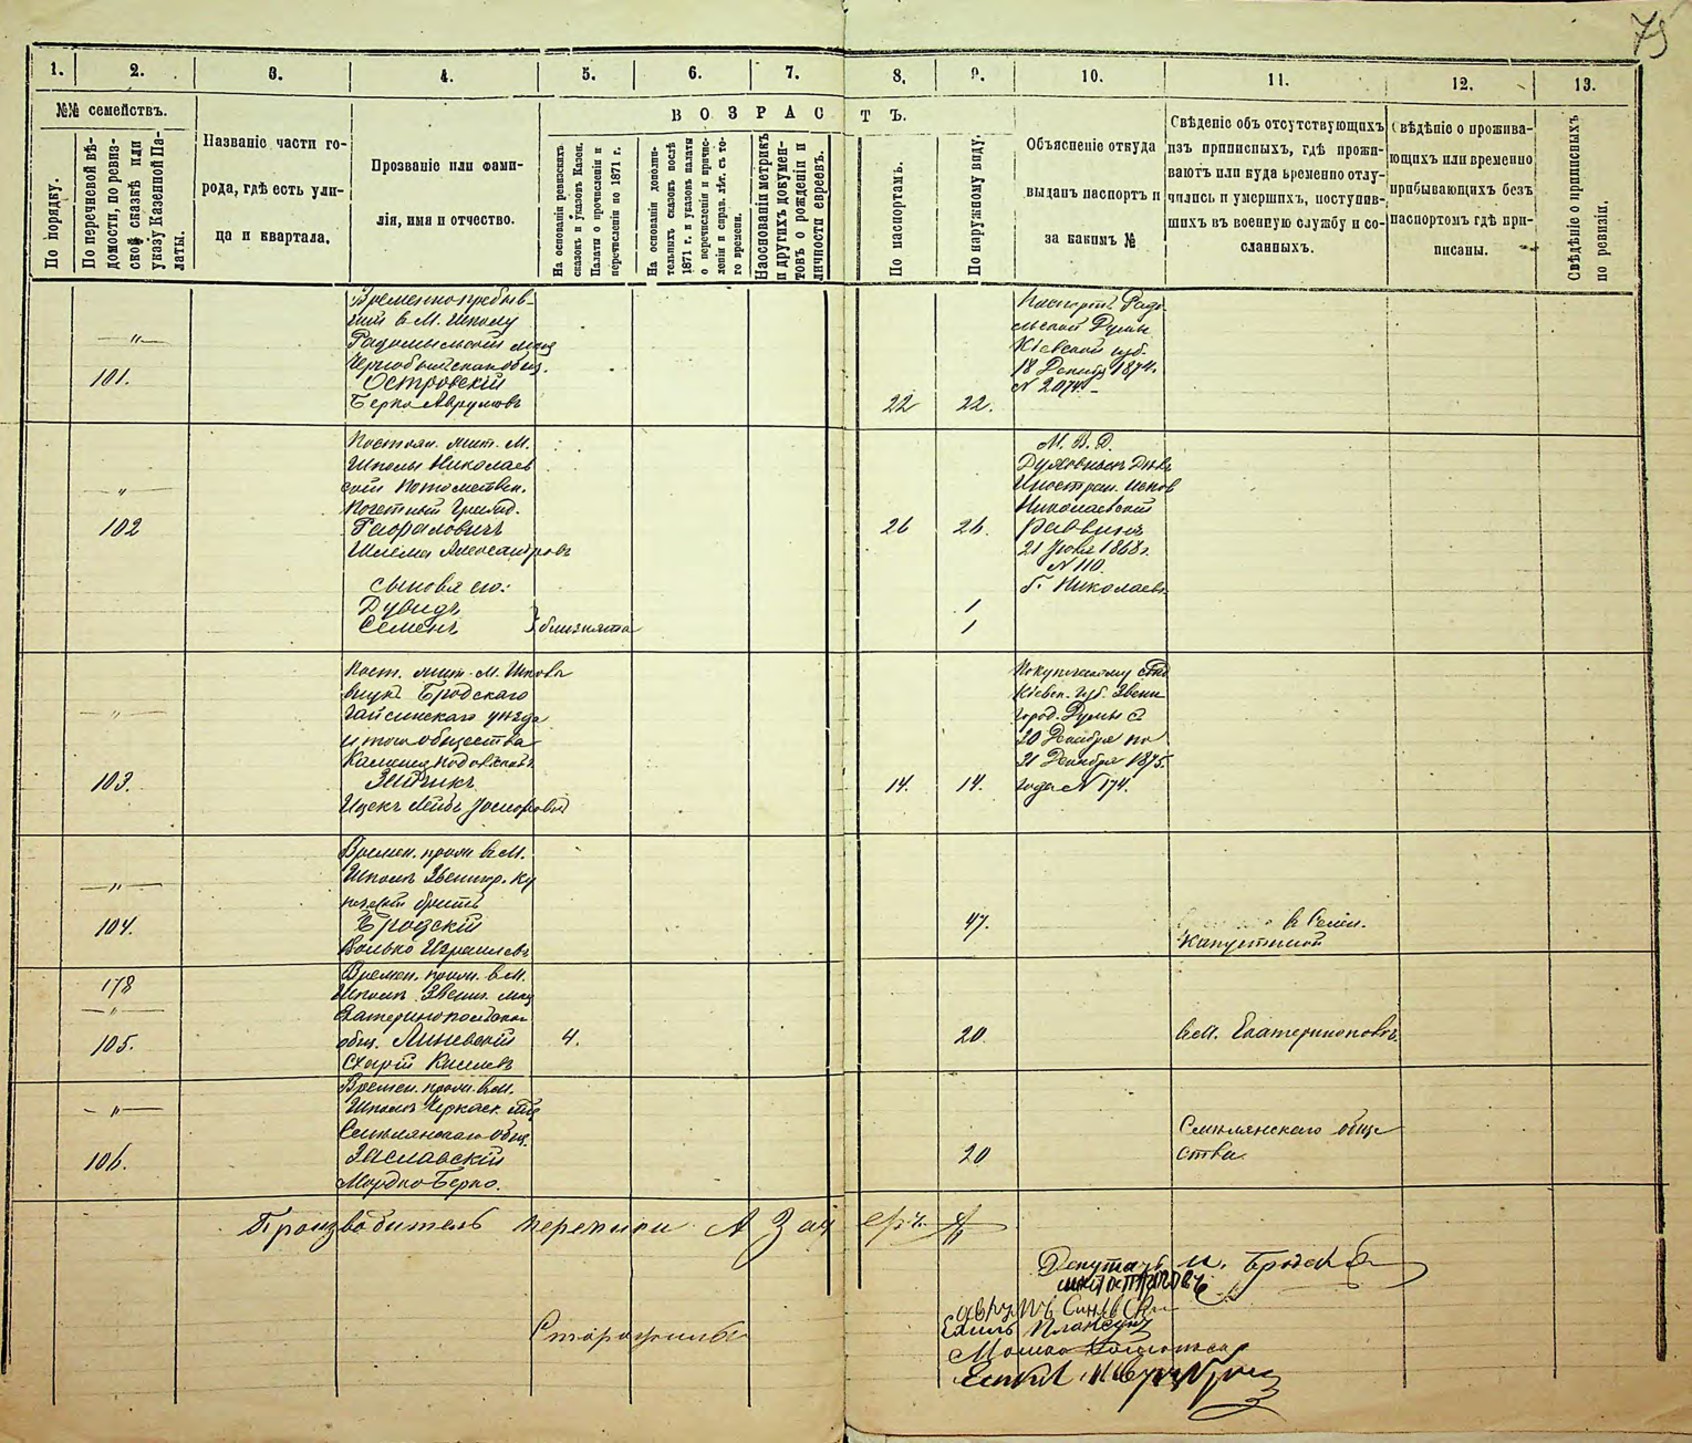 75
1. 2. 3. 4. 5. 6. 7. 8. 9. 10. 11. 12. 13.
№№ семействъ.
По порядку.
По перечневой вѣ-
домости, по ревиз-
ской сказкѣ или
указу Казенной Па-
латы.
Названіе части го-
рода, гдѣ есть ули-
ца и квартала.
Прозваніе или фами-
лія, имя и отчество.
ВОЗРАСТЪ.
На основаніи ревизскихъ
сказокъ и указовъ Казен.
Палаты о причисленіи и
перечисленіи по 1871 г.
На основаніи дополни-
тельныхъ сказокъ послѣ
1871 г. и указовъ палаты
о перечисленіи и причис-
леніи и справ. лѣт. съ то-
го времени.
На основаніи метрикъ
и другихъ докумен-
товъ о рожденіи и
личности евреевъ.
По паспортамъ.
По наружному виду.
Объясненіе откуда
выданъ паспортъ и
за какимъ №
Свѣденіе объ отсутствующихъ
изъ приписныхъ, гдѣ прожи-
ваютъ или куда временно отлу-
чились и умершихъ, поступив-
шихъ въ военную службу и со-
сланныхъ.
Свѣдѣніе о прожива-
ющихъ или временно
прибывающихъ безъ
паспортомъ гдѣ при-
писаны.
Свѣдѣніе о приписныхъ
по ревизіи.
—〃—
101.
Временно пребыв-
шій в М. Шполу
Радомысльскій мещ
Островскій
Берко Аврумовъ
22 22.
Паспортъ Радо
мысльской Думы
Кіевской губ.
18 Декабр 1874.
N 2074.
—〃—
102
Постоян. жит. М.
Шполы Николаев
скій Потомствен.
Почетный Гражд.
Рафаловичъ
Шлема Александровъ
26 26.
М. В. Д.
Духовныхъ Дѣлъ
Иностран. Испов
Николаевскій
раввинъ
21 Іюля 1868 г.
N 110.
г. Николаевъ
сыновя его:
Дувидъ 1
Семенъ } близнята 1
—〃—
103.
Пост. жит. М. Шполы
внукъ Бродскаго
Гайсинскаго уѣзда
и того общества
Зайчикъ
Ицекъ Лейбъ
14. 14.
Кіевск. губ. Звени
город. Думы съ
20 Декабря по
21 Декабря 1875.
года N 174.
—〃—
104.
Времен. прож. в М.
Шполѣ Звениг. ку
печескій братъ
Бродскій
Волько Израилевъ
47.
в Селѣ.
Капустиной
178
—〃—
105.
Времен. прож. в М.
Шполѣ Звениг. мещ
Екатеринопольскаго
общ. Линевскій
4. 20.
в М. Екатеринополѣ.
—〃—
106.
Времен. прож. в М.
Шполѣ Черкаск. мѣщ
Смѣлянскаго общ.
Заславскій
Мордко Берко.
20
Смѣлянскаго обще
ства.
Производитель переписи А
Депутатъ М. Бродск